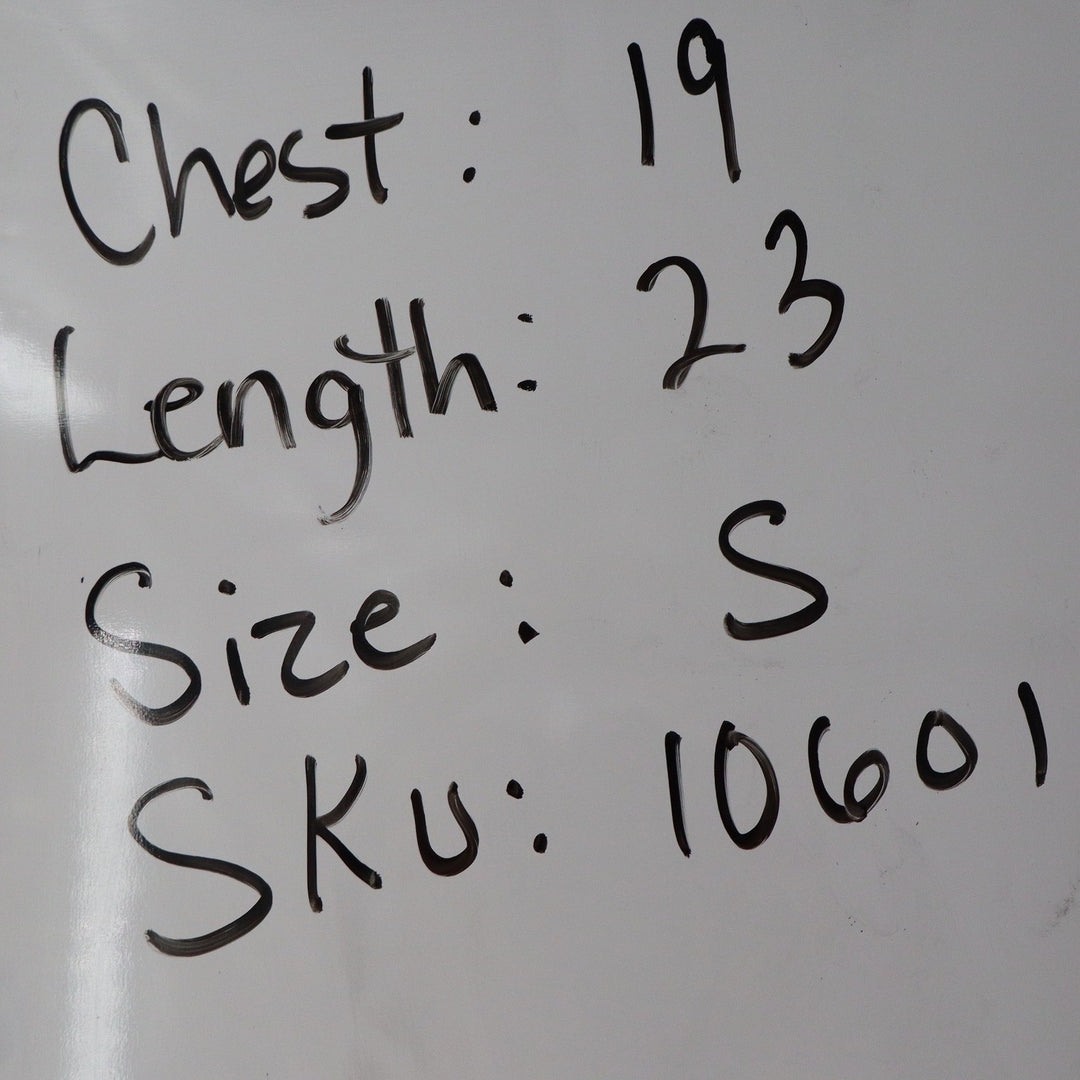 Chest: 19
Length: 23
Size: S
SKU: 10601